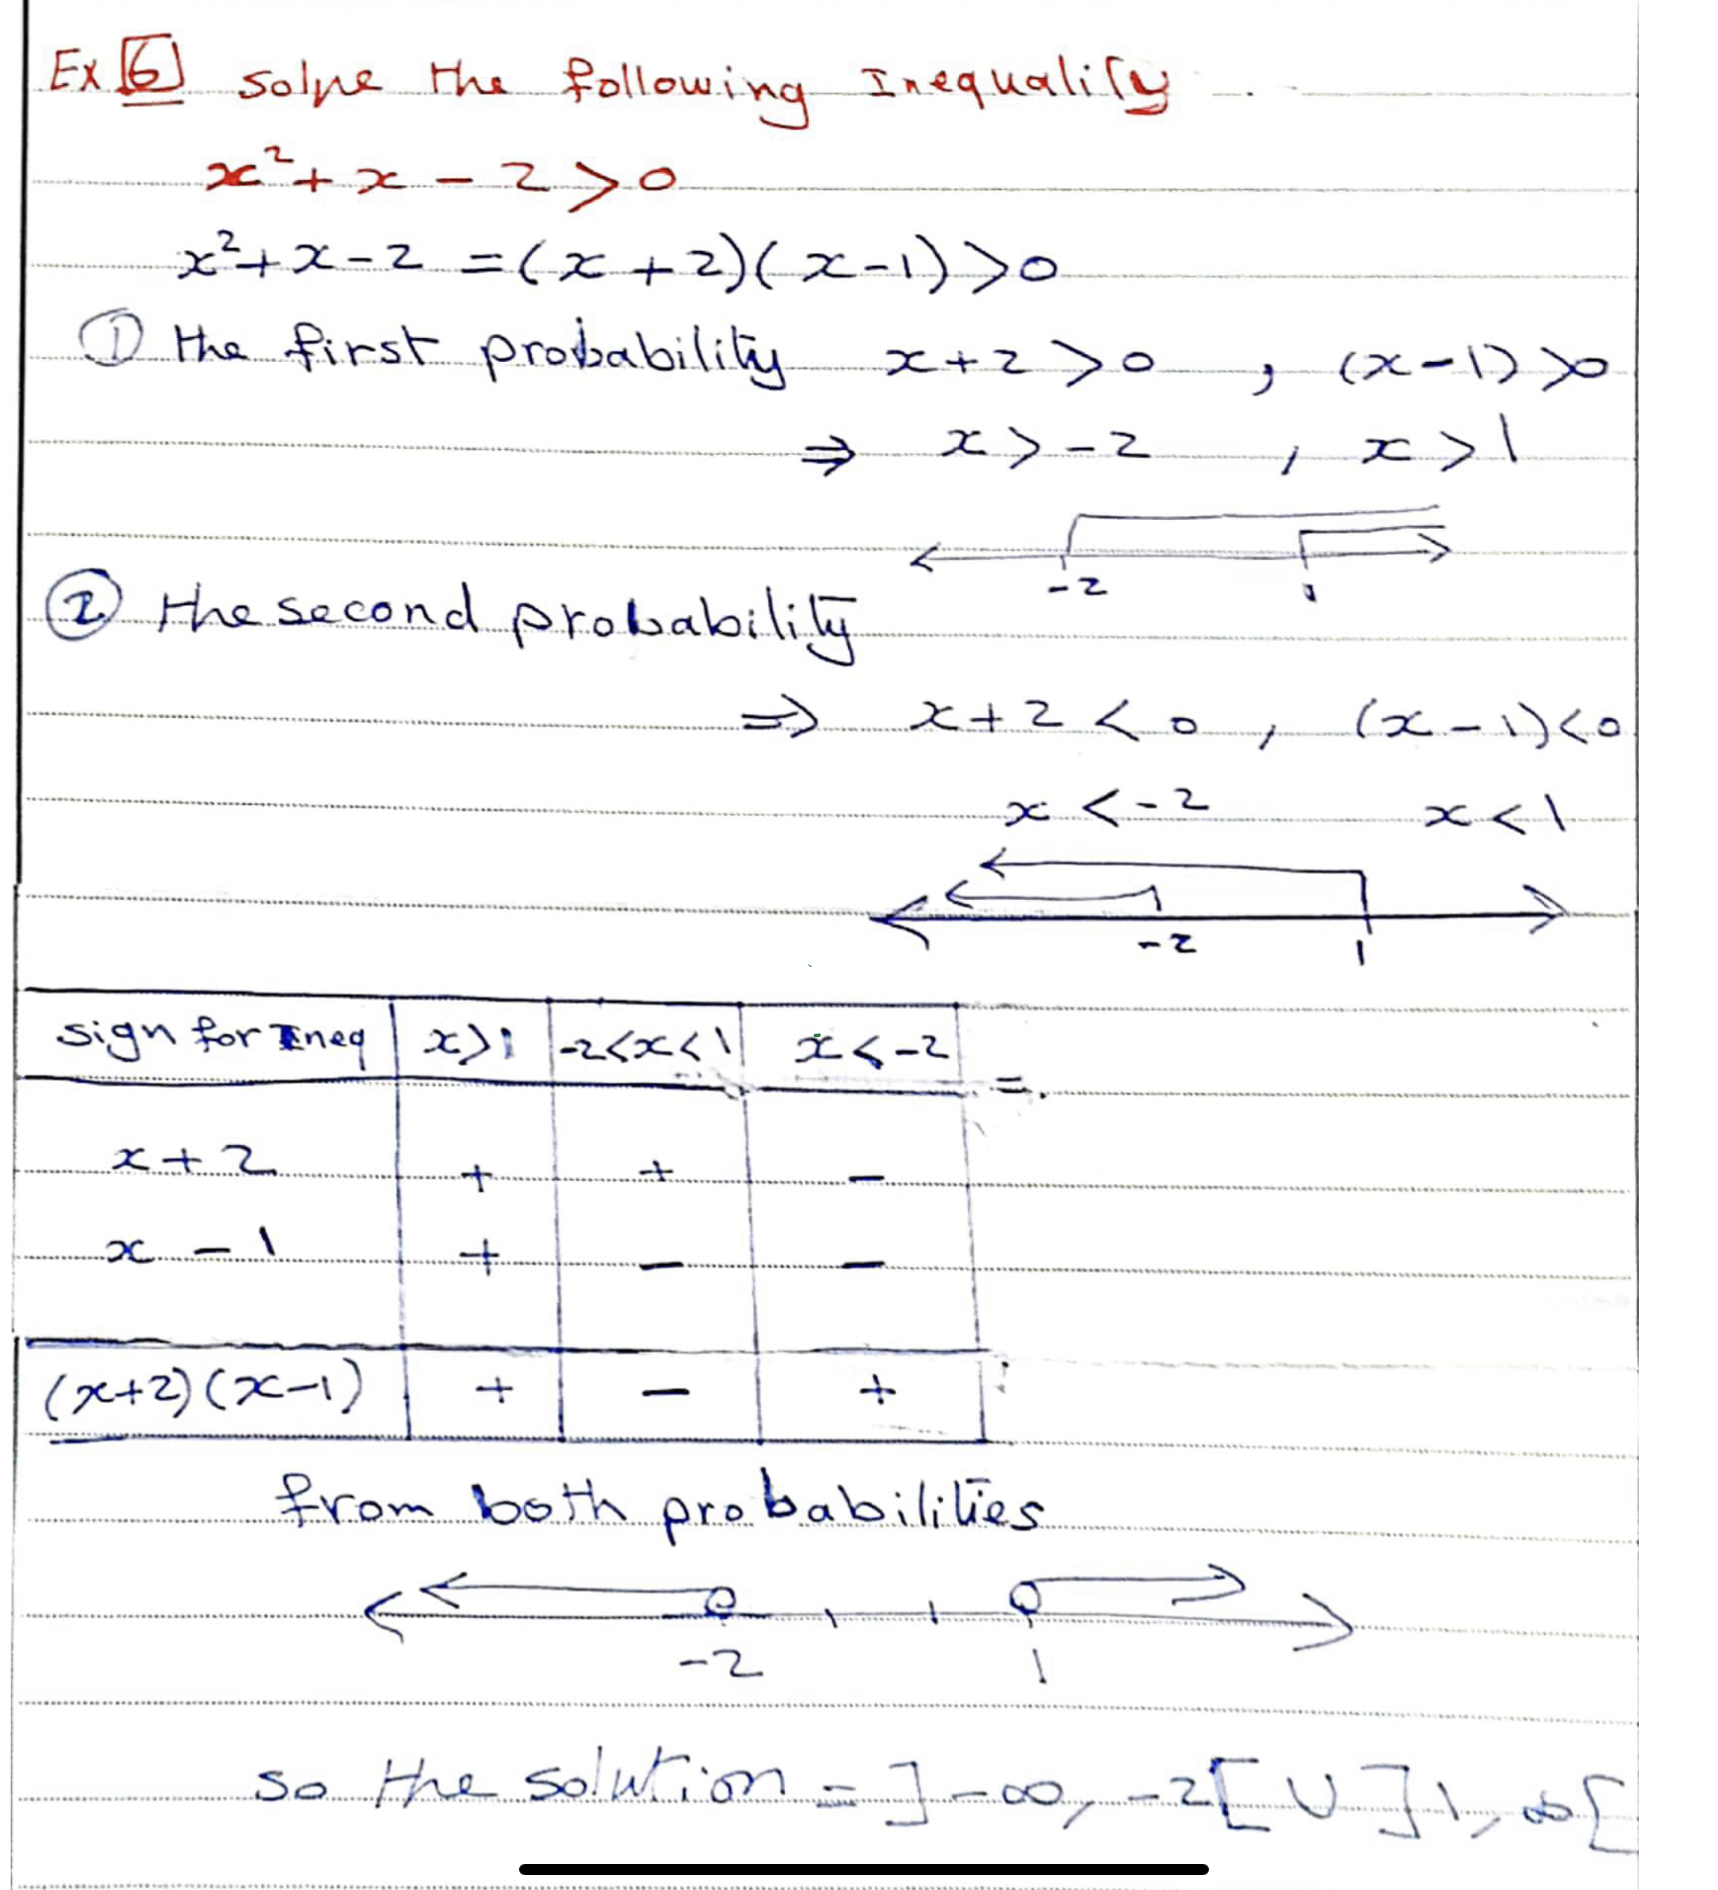 Ex 6 solve the following Inequality
x² + x - 2 > 0
x² + x - 2 = (x + 2)(x - 1) > 0
① the first probability x + 2 > 0 , (x - 1) > 0
⇒ x > -2 , x > 1
-2 1
② the second probability
⇒ x + 2 < 0 , (x - 1) < 0
x < -2 x < 1
-2 1
sign for Ineq x > 1 -2 < x < 1 x < -2
x + 2 + + -
x - 1 + - -
(x+2)(x-1) + - +
from both probabilities
-2 1
so the solution = ]-∞, -2[ ∪ ]1, ∞[